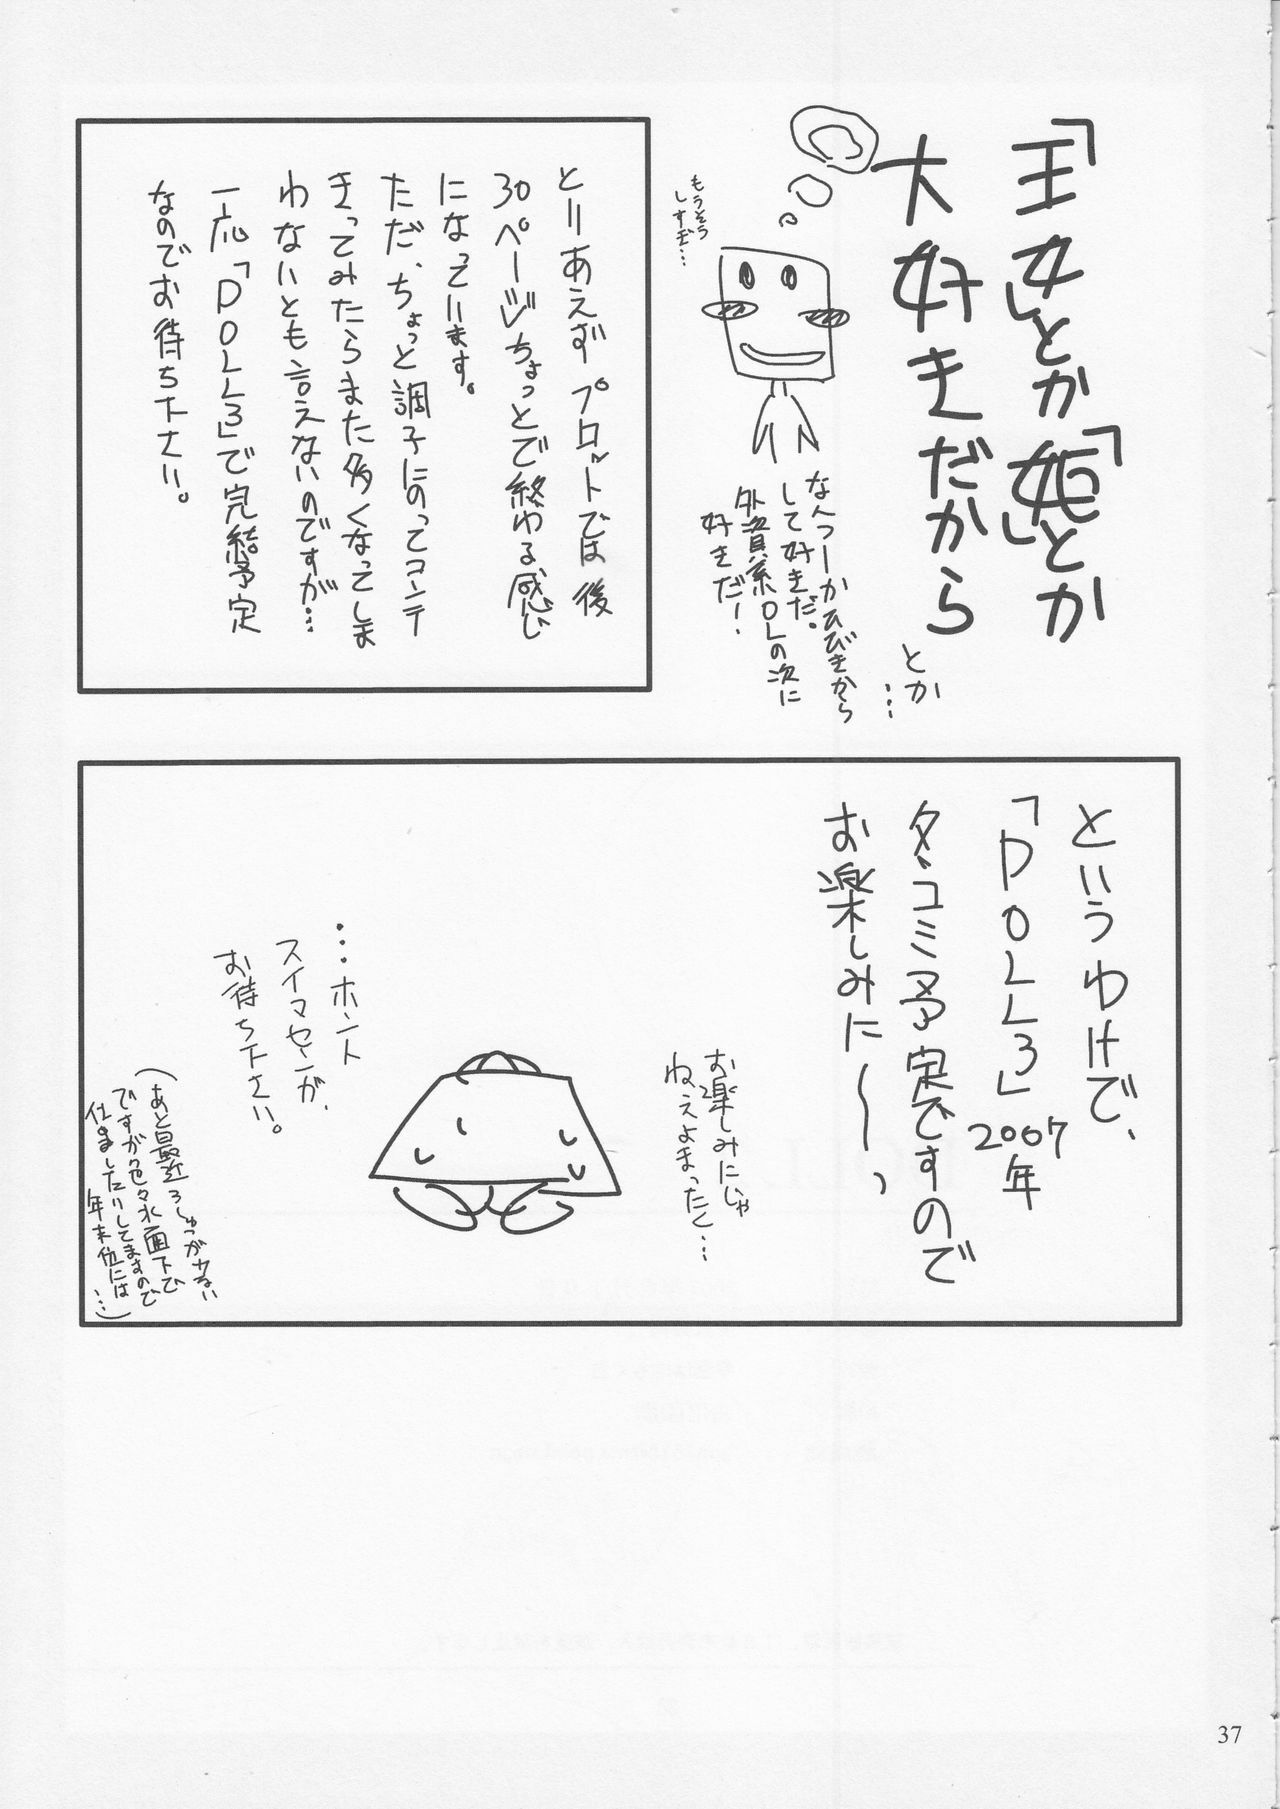 「王女」とか「姫」とか
大好きだから
とか
…
もうそう
しすぎ…
なんつーかひびきから
して好きだ。
外資系OLの次に
好きだ！
とりあえずプロットでは後
30ページちょっとで終わる感じ
になっています。
ただ、ちょっと調子にのってコンテ
きってみたらまた多くなってしま
わないとも言えないのですが…
一応「DOLL3」で完結予定
なのでお待ち下さい。
というわけで、
「DOLL3」2007年
冬コミ予定ですので
お楽しみに〜〜っ
お楽しみにじゃ
ねえよまったく…
…ホント
スイマセンが、
お待ち下さい。
(あと最近ろしゅつが少ない
ですが色々水面下で
仕ましたりしてますので
年末位には
…)
37